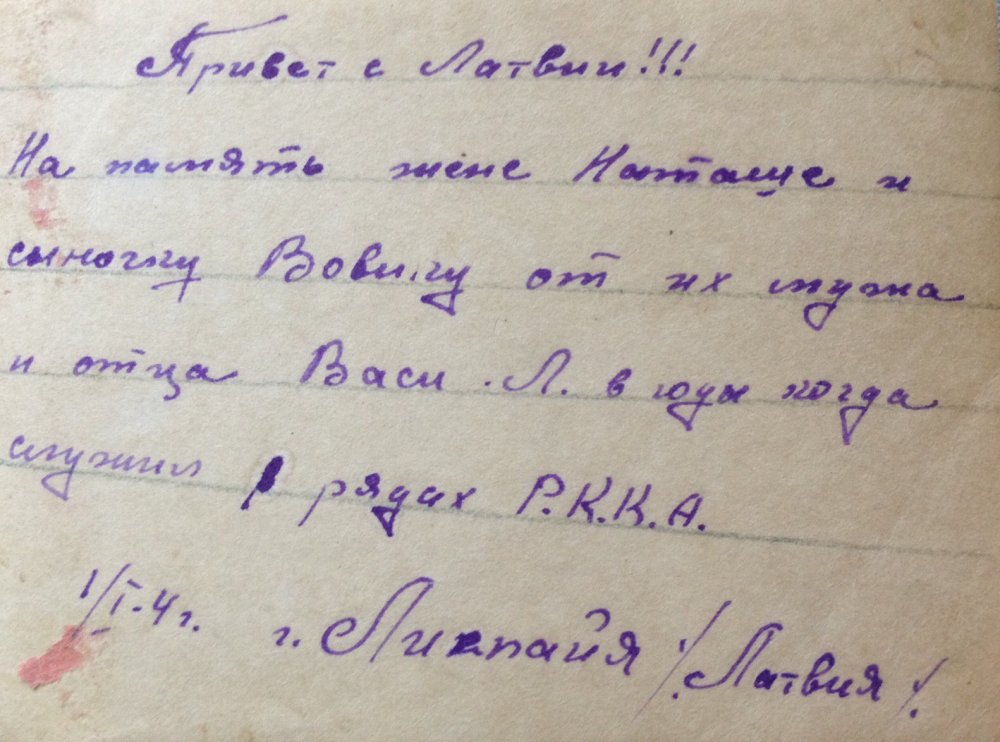 Привет с Латвии!!!
На память жене Наташе и
сыночку Вовичу от их мужа
и отца Васи .Л. в годы когда
служил в рядах Р.К.К.А.
1/I-4 г. г. Лиепайя /.Латвия/.